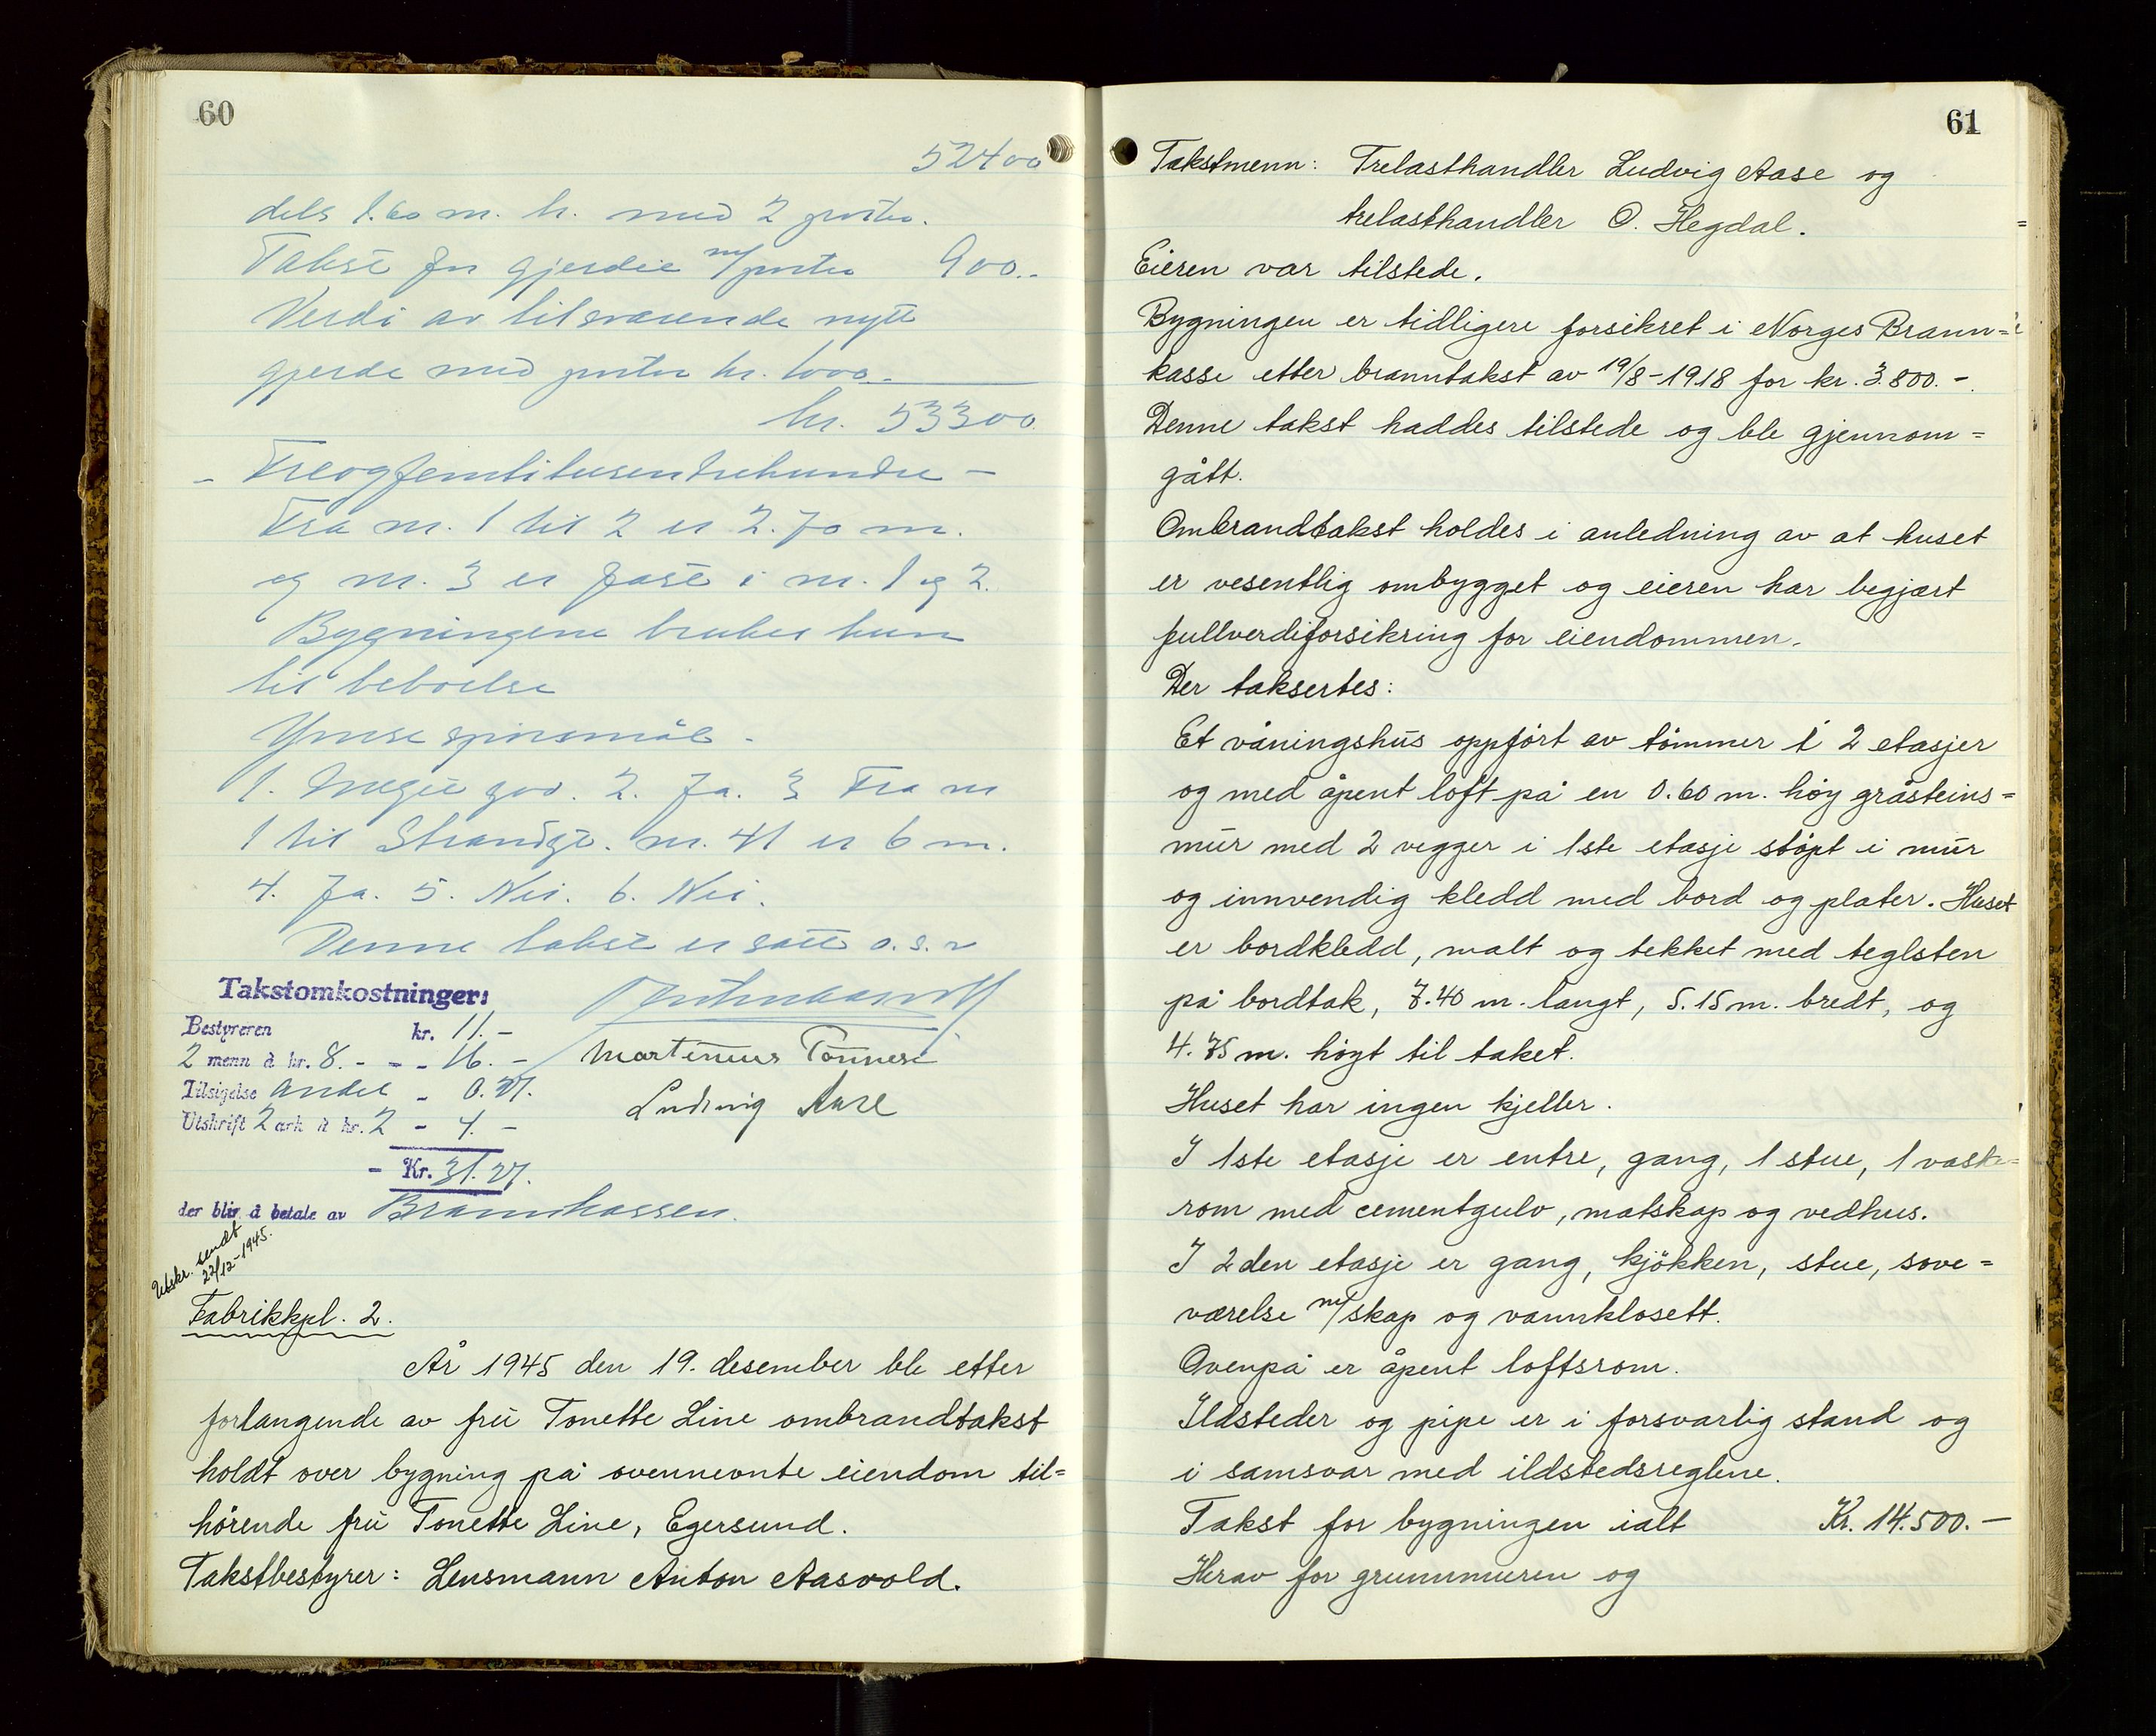 60
52400
dels 1.60 m. h. med 2 porter.
Takst for gjerdet m/porter 900.-
Verdi av tilsvarende nytt
gjerde med porter kr. 1000.-
kr. 53300.
- Treogfemtitusentrehundre -
Fra nr. 1 til 2 er 2.70 m.
og nr. 3 er fast i nr. 1 og 2.
Bygningene brukes kun
til beboelse
Ymse spørsmål.
1. Meget god. 2. Ja. 3 Fra nr
1 til Strandgt. nr. 41 er 6 m.
4. Ja. 5. Nei. 6. Nei.
Denne takst er satt o.s.v
Takstomkostninger:
Bestyreren kr. 11.-
2 menn à kr. 8.- - - 16.-
Martinius Tønnesen
Tilsigelse andel - 0.27.
Ludvig Aase
Utskrift 2 ark à kr. 2 - 4.-
- Kr. 31.27.
der blir å betale av Brannkassen.
Utskr. sendt
22/12-1945.
Fabrikkpl. 2.
År 1945 den 19. desember ble etter
forlangende av frü Tonette Line ombrandtakst
holdt over bygning på ovennevnte eiendom til=
hørende frü Tonette Line, Egersund.
Takstbestyrer: Lensmann Anton Aasvold.
61
Takstmenn: Trelasthandler Ludvig Aase og
trelasthandler O. Hegdal.
Eieren var tilstede.
Bygningen er tidligere forsikret i Norges Brann=
kasse etter branntakst av 19/8-1918 for kr. 3.800.-
Denne takst haddes tilstede og ble gjennom=
gått.
Ombrandtakst holdes i anledning av at huset
er vesentlig ombygget og eieren har begjært
fullverdiforsikring for eiendommen.
Der taksertes:
Et våningshus oppført av tømmer i 2 etasjer
og med åpent loft på en 0.60 m. høy gråsteins=
mür med 2 vegger i 1ste etasje støpt i mür
og innvendig kledd med bord og plater. Huset
er bordkledd, malt og tekket med teglsten
på bordtak, 7.40 m. langt, 5.15 m. bredt, og
4.75 m. høyt til taket.
Huset har ingen kjeller.
I 1ste etasje er entre, gang, 1 stue, 1 vaske=
rom med cementgulv, matskap og vedhus.
I 2den etasje er gang, kjøkken, stue, sove=
værelse m/skap og vannklosett.
Ovenpå er åpent loftsrom.
Ildsteder og pipe er i forsvarlig stand og
i samsvar med ildstedsreglene.
Takst for bygningen ialt Kr. 14.500.-
Herav for grunnmuren og